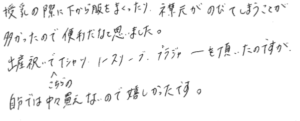 授乳の際に下から服をまくったり、襟元がのびてしまうことが
多かったので便利だなと思いました。
出産祝いでTシャツ、ノースリーブ、ブラジャーを頂いたのですが、
こちらの
自分では中々買えないので嬉しかったです。